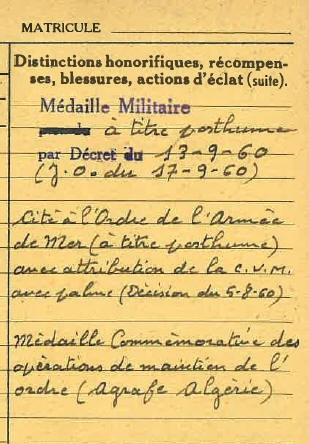 MATRICULE
Distinctions honorifiques, récompen-
ses, blessures, actions d'éclat (suite).
Médaille Militaire
à titre posthume
par Décret du 13-9-60
(J.O. du 17-9-60)
Cité à l'Ordre de l'Armée
de Mer (à titre posthume)
avec attribution de la C.V.M.
avec palme (Décision du 5-8-60)
Médaille Commémorative des
opérations de maintien de l'
ordre (Agrafe Algérie)